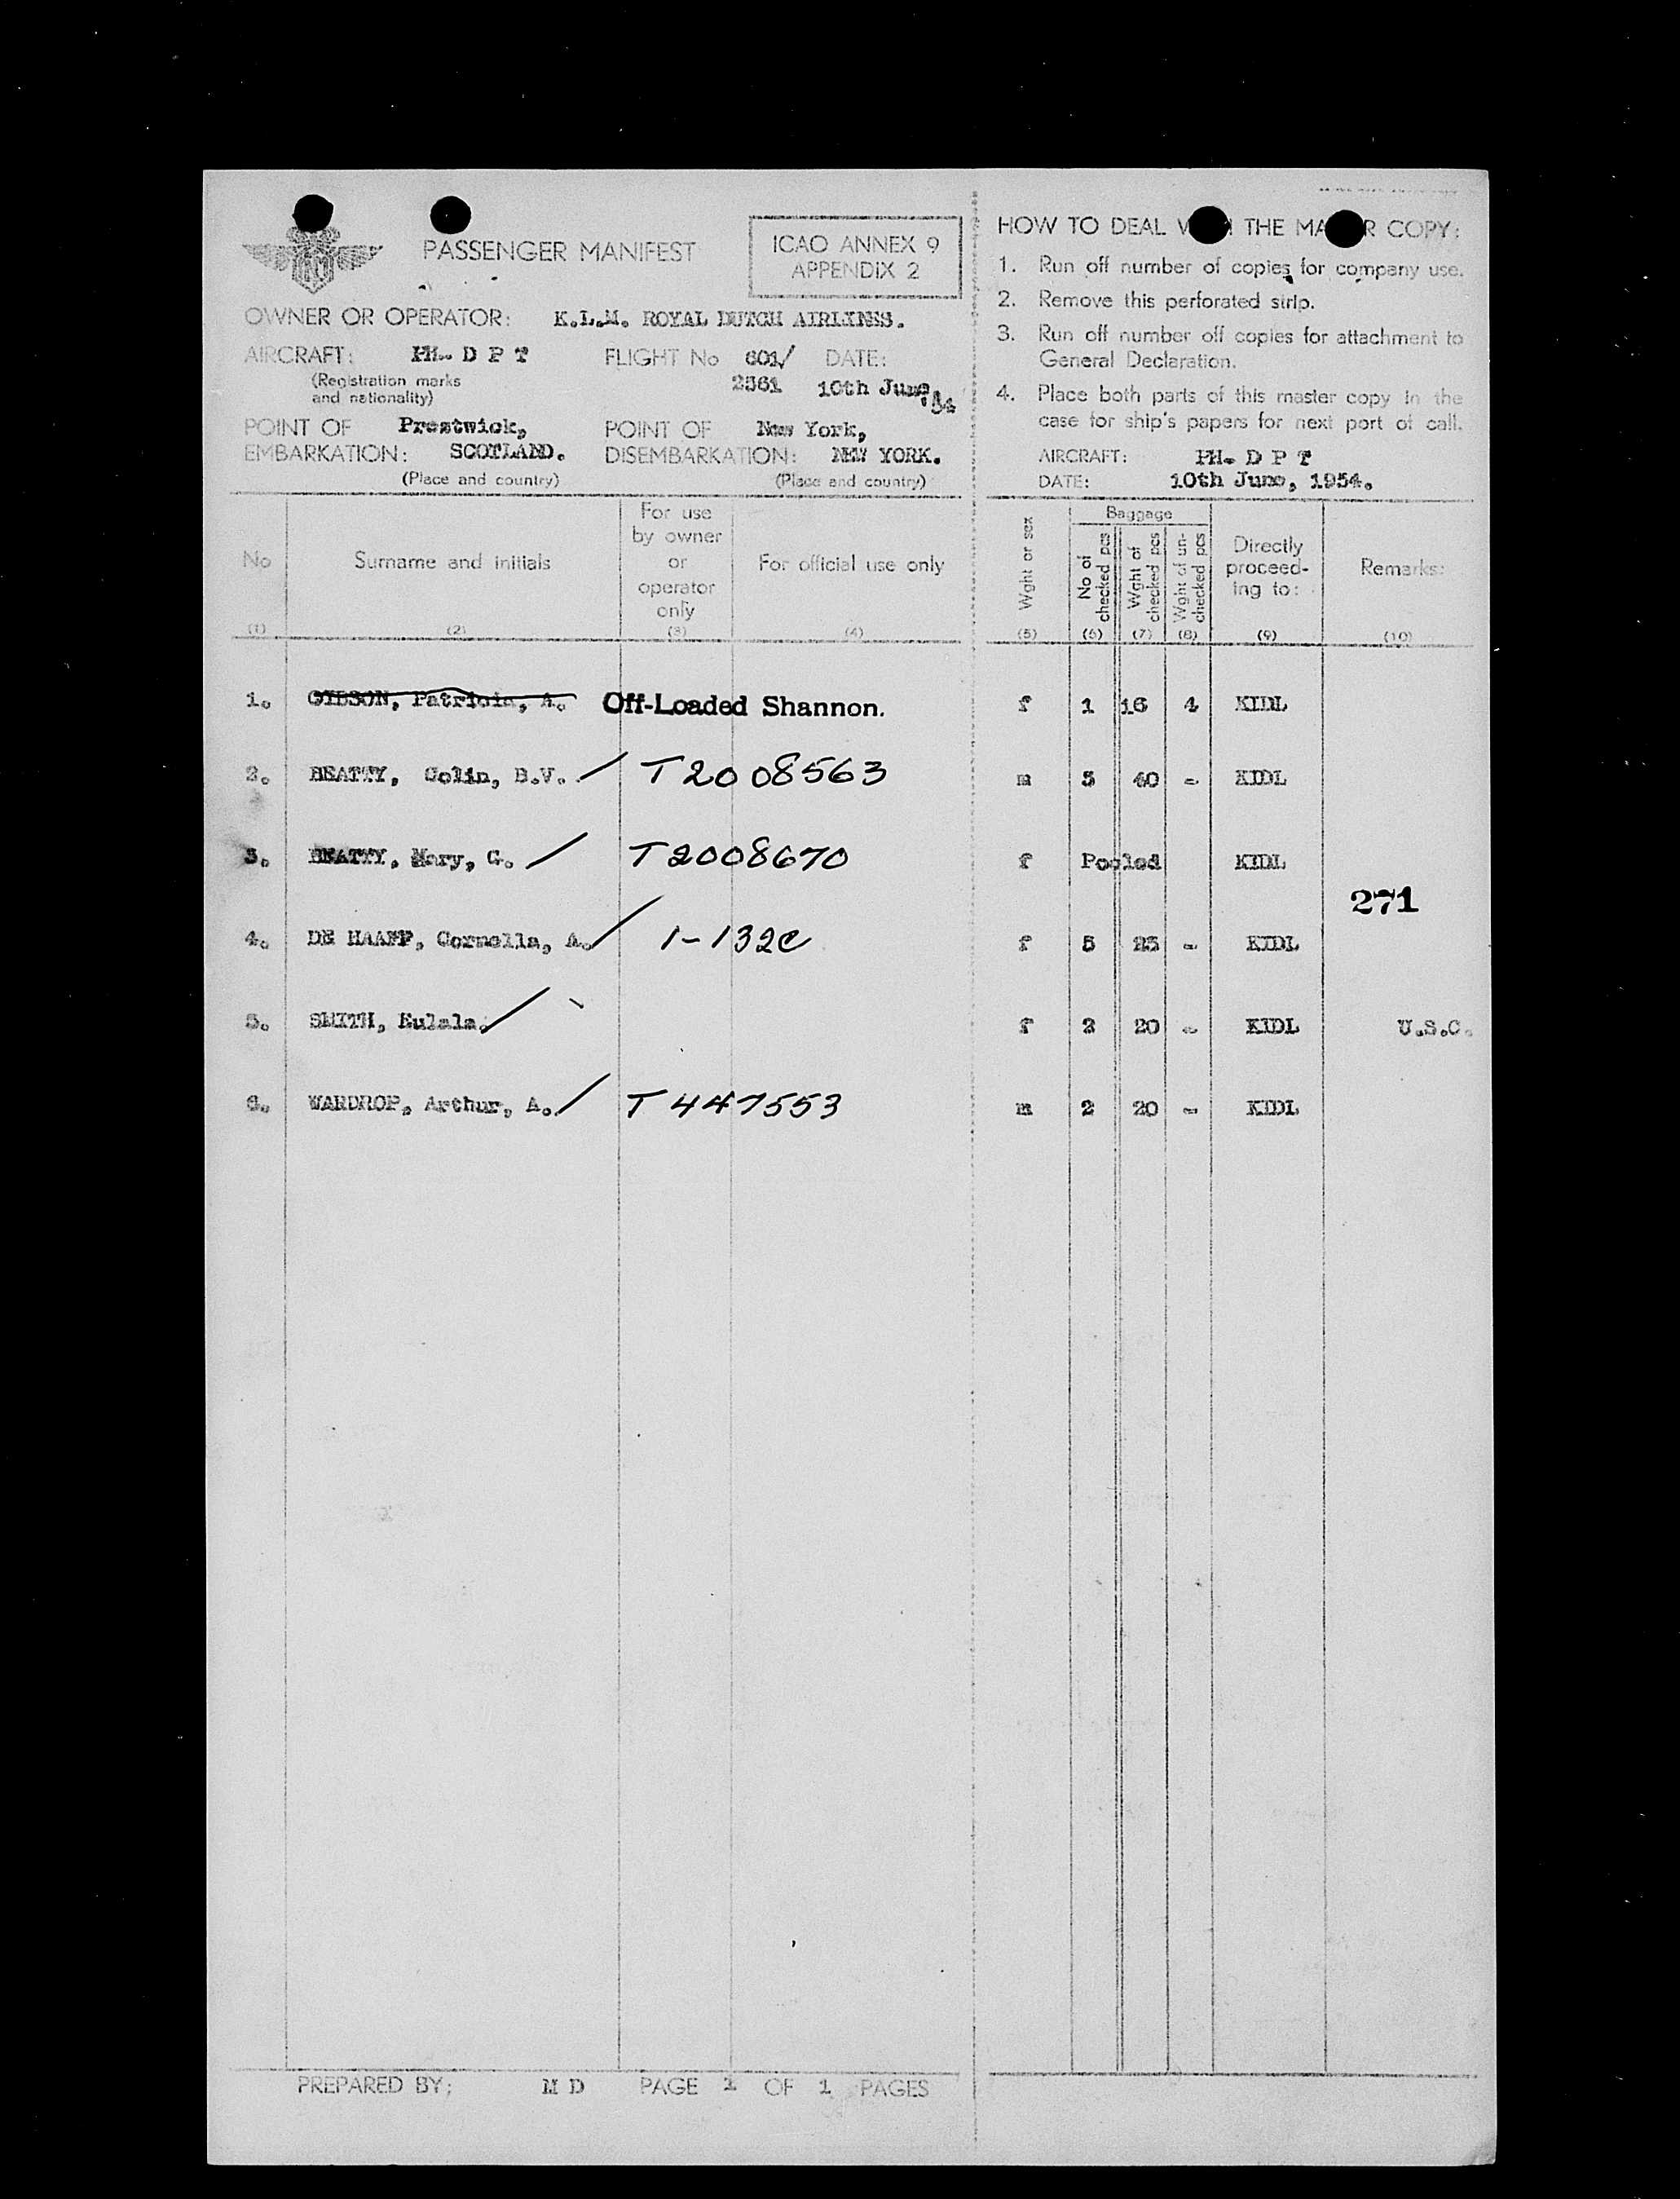 PASSENGER MANIFEST
ICAO ANNEX 9
APPENDIX 2
OWNER OR OPERATOR: K.L.M. ROYAL DUTCH AIRLINES.
AIRCRAFT: PH- D P T FLIGHT No 601/ DATE:
(Registration marks
and nationality)
2361 10th June, '54
POINT OF Prestwick, POINT OF New York,
EMBARKATION: SCOTLAND. DISEMBARKATION: NEW YORK.
(Place and country) (Place and country)
HOW TO DEAL THE COPY:
1. Run off number of copies for company use.
2. Remove this perforated strip.
3. Run off number off copies for attachment to
General Declaration.
4. Place both parts of this master copy in the
case for ship's papers for next port of call.
AIRCRAFT: PH- D P T
DATE: 10th June, 1954.
No
(1)
Surname and initials
(2)
For use
by owner
or
operator
only
(3)
For official use only
(4)
Wght or sex
(5)
Baggage
No of
checked pcs
(6)
Wght of
checked pcs
(7)
Wght of un-
checked pcs
(8)
Directly
proceed-
ing to:
(9)
Remarks:
(10)
1. GIBSON, Patricia, A. Off-Loaded Shannon. f 1 16 4 KIDL
2. BEATTY, Colin, B.V. / T2008563 m 3 40 - KIDL
3. BEATTY, Mary, G. / T2008670 f Pooled KIDL
271
4. DE HAAFF, Cornelia, A. / 1-132c f 5 25 - KIDL
5. SMITH, Eulala. / f 2 20 - KIDL U.S.C.
6. WARDROP, Arthur, A. / T447553 m 2 20 - KIDL
PREPARED BY: M D PAGE 1 OF 1 PAGES